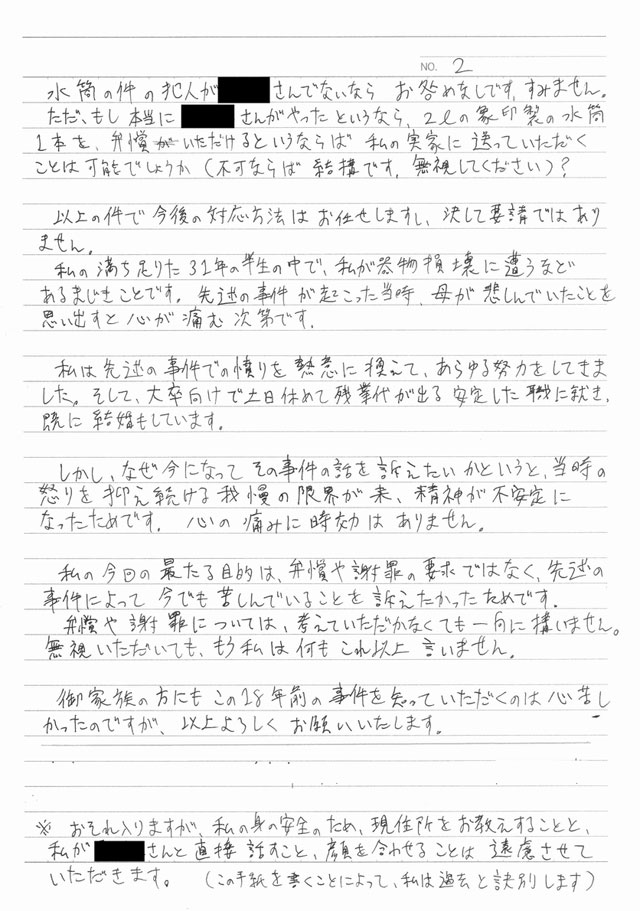 NO. 2
水筒の件の犯人が さんでないなら お咎めなしです。すみません。
ただ、もし本当に さんがやったというなら、2lの象印製の水筒
1本を、弁償がいただけるというならば 私の実家に送っていただく
ことは可能でしょうか(不可ならば結構です。無視してください)?
以上の件で今後の対応方法はお任せしますし、決して要請ではあり
ません。
私の満ち足りた31年の半生の中で、私が器物損壊に遭うなど
あるまじきことです。先述の事件が起こった当時、母が悲しんでいたことを
思い出すと心が痛む次第です。
私は先述の事件での憤りを熱意に換えて、あらゆる努力をしてきま
した。そして、大卒向けで土日休めて残業代が出る安定した職に就き、
既に結婚もしています。
しかし、なぜ今になってその事件の話を訴えたいかというと、当時の
怒りを抑え続ける我慢の限界が来、精神が不安定に
なったためです。心の痛みに時効はありません。
私の今回の最たる目的は、弁償や謝罪の要求ではなく、先述の
事件によって今でも苦しんでいることを訴えたかったためです。
弁償や謝罪については、考えていただかなくても一向に構いません。
無視いただいても、もう私は何もこれ以上言いません。
御家族の方にもこの18年前の事件を知っていただくのは心苦し
かったのですが、以上よろしくお願いいたします。
※ おそれ入りますが、私の身の安全のため、現住所をお教えすることと、
私が さんと直接話すこと、顔を合わせることは遠慮させて
いただきます。(この手紙を書くことによって、私は過去と訣別します)